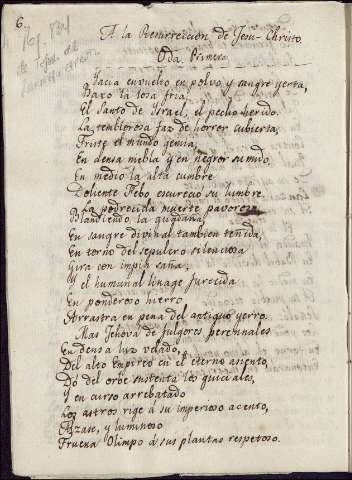 6.
A la Resurreccion de Jesu-Christo.
Oda Primera
Yacia envuelto en polvo, y sangre yerta,
Baxo la losa fria
El Santo de Israel, el pecho herido.
La temblorosa faz de horror cubierta,
Triste el mundo gemia,
En densa niebla y en negror sumido,
En medio la alta cumbre
Doliente Febo escureció su lumbre.
La podrecida muerte pavorosa
Blandiendo la guadaña,
En sangre divinal tambien teñida,
En torno del sepulcro silenciosa
Gira con impia saña,
Y el humanal linage furecida
En ponderoso hierro
Arrastra en pena del antiguo yerro.
Mas Jehová de fulgores perennales
En densa luz velado,
Del alto Empireo en el eterno asiento,
Dó del orbe sustenta los quiciales,
Y en curso arrebatado
Los astros rige á su imperioso acento,
Alzase, y luminoso
Truena Olimpo á sus plantas respetoso.